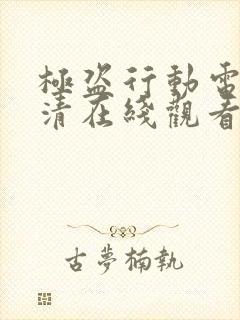 極盜行動電
清在綫觀看
古夢楠執